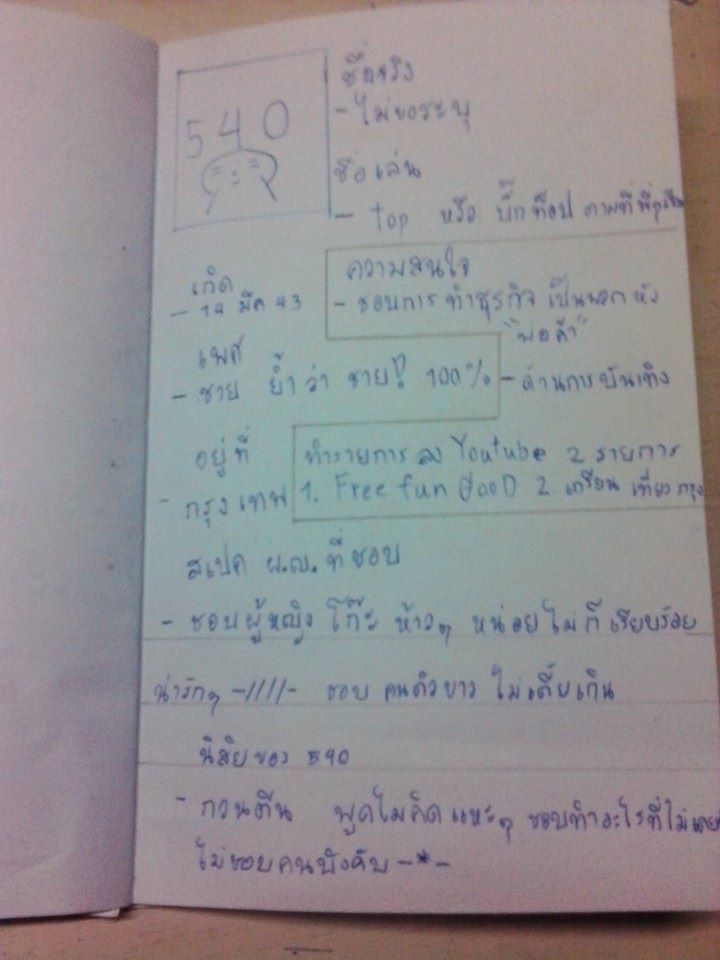 540
ชื่อจริง
- ไม่ขอระบุ
ชื่อเล่น
- top หรือ บิ๊กท็อป ตามที่พี่ๆ
เกิด
- 14 มีค 43
ความสนใจ
- ชอบการทำธุรกิจ เป็น
"พ่อค้า"
- ด้านการบันเทิง
เพศ
- ชาย ย้ำว่า ชาย! 100%
อยู่ที่
- กรุงเทพ
ทำรายการ ลง Youtube 2 รายการ
1. Free fun 2 เกรียน เที่ยว กรุง
สเปค ผ.ญ. ที่ชอบ
- ชอบผู้หญิง โก๊ะ ห้าวๆ หน่อยไม่ก็เรียบร้อย
น่ารักๆ -////- ชอบ คนตัวขาว ไม่เตี้ยเกิน
นิสัยของ 540
- กวนตีน พูดไม่คิดแหะๆ ชอบทำอะไรที่ไม่เคย
ไม่ชอบคนบังคับ -*-